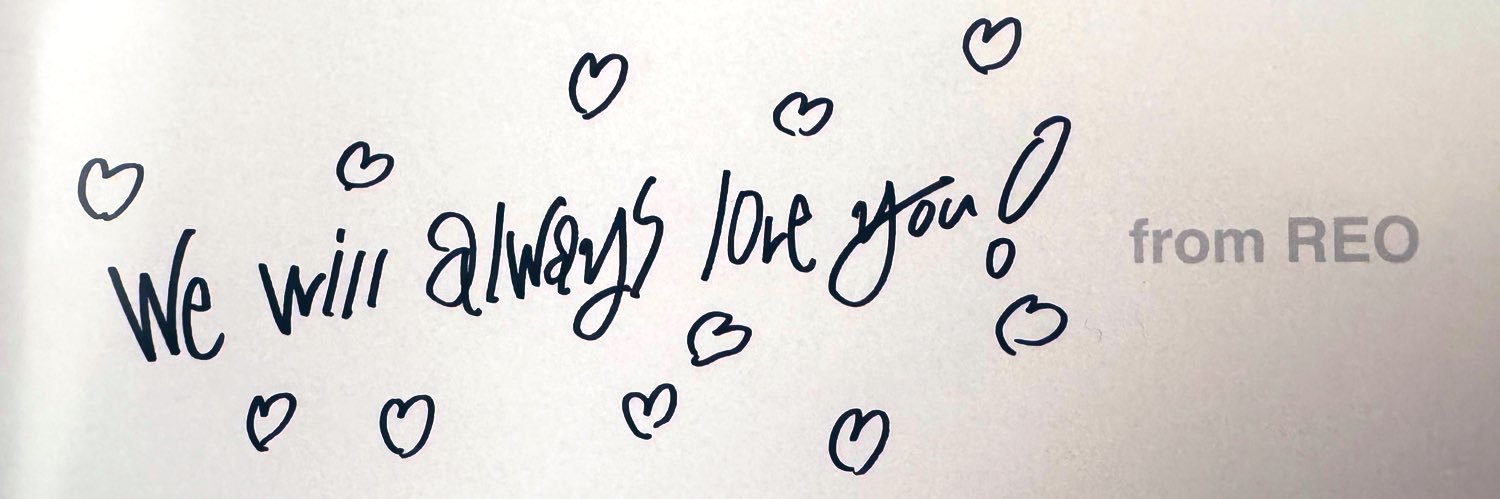 We will always love you!
from REO